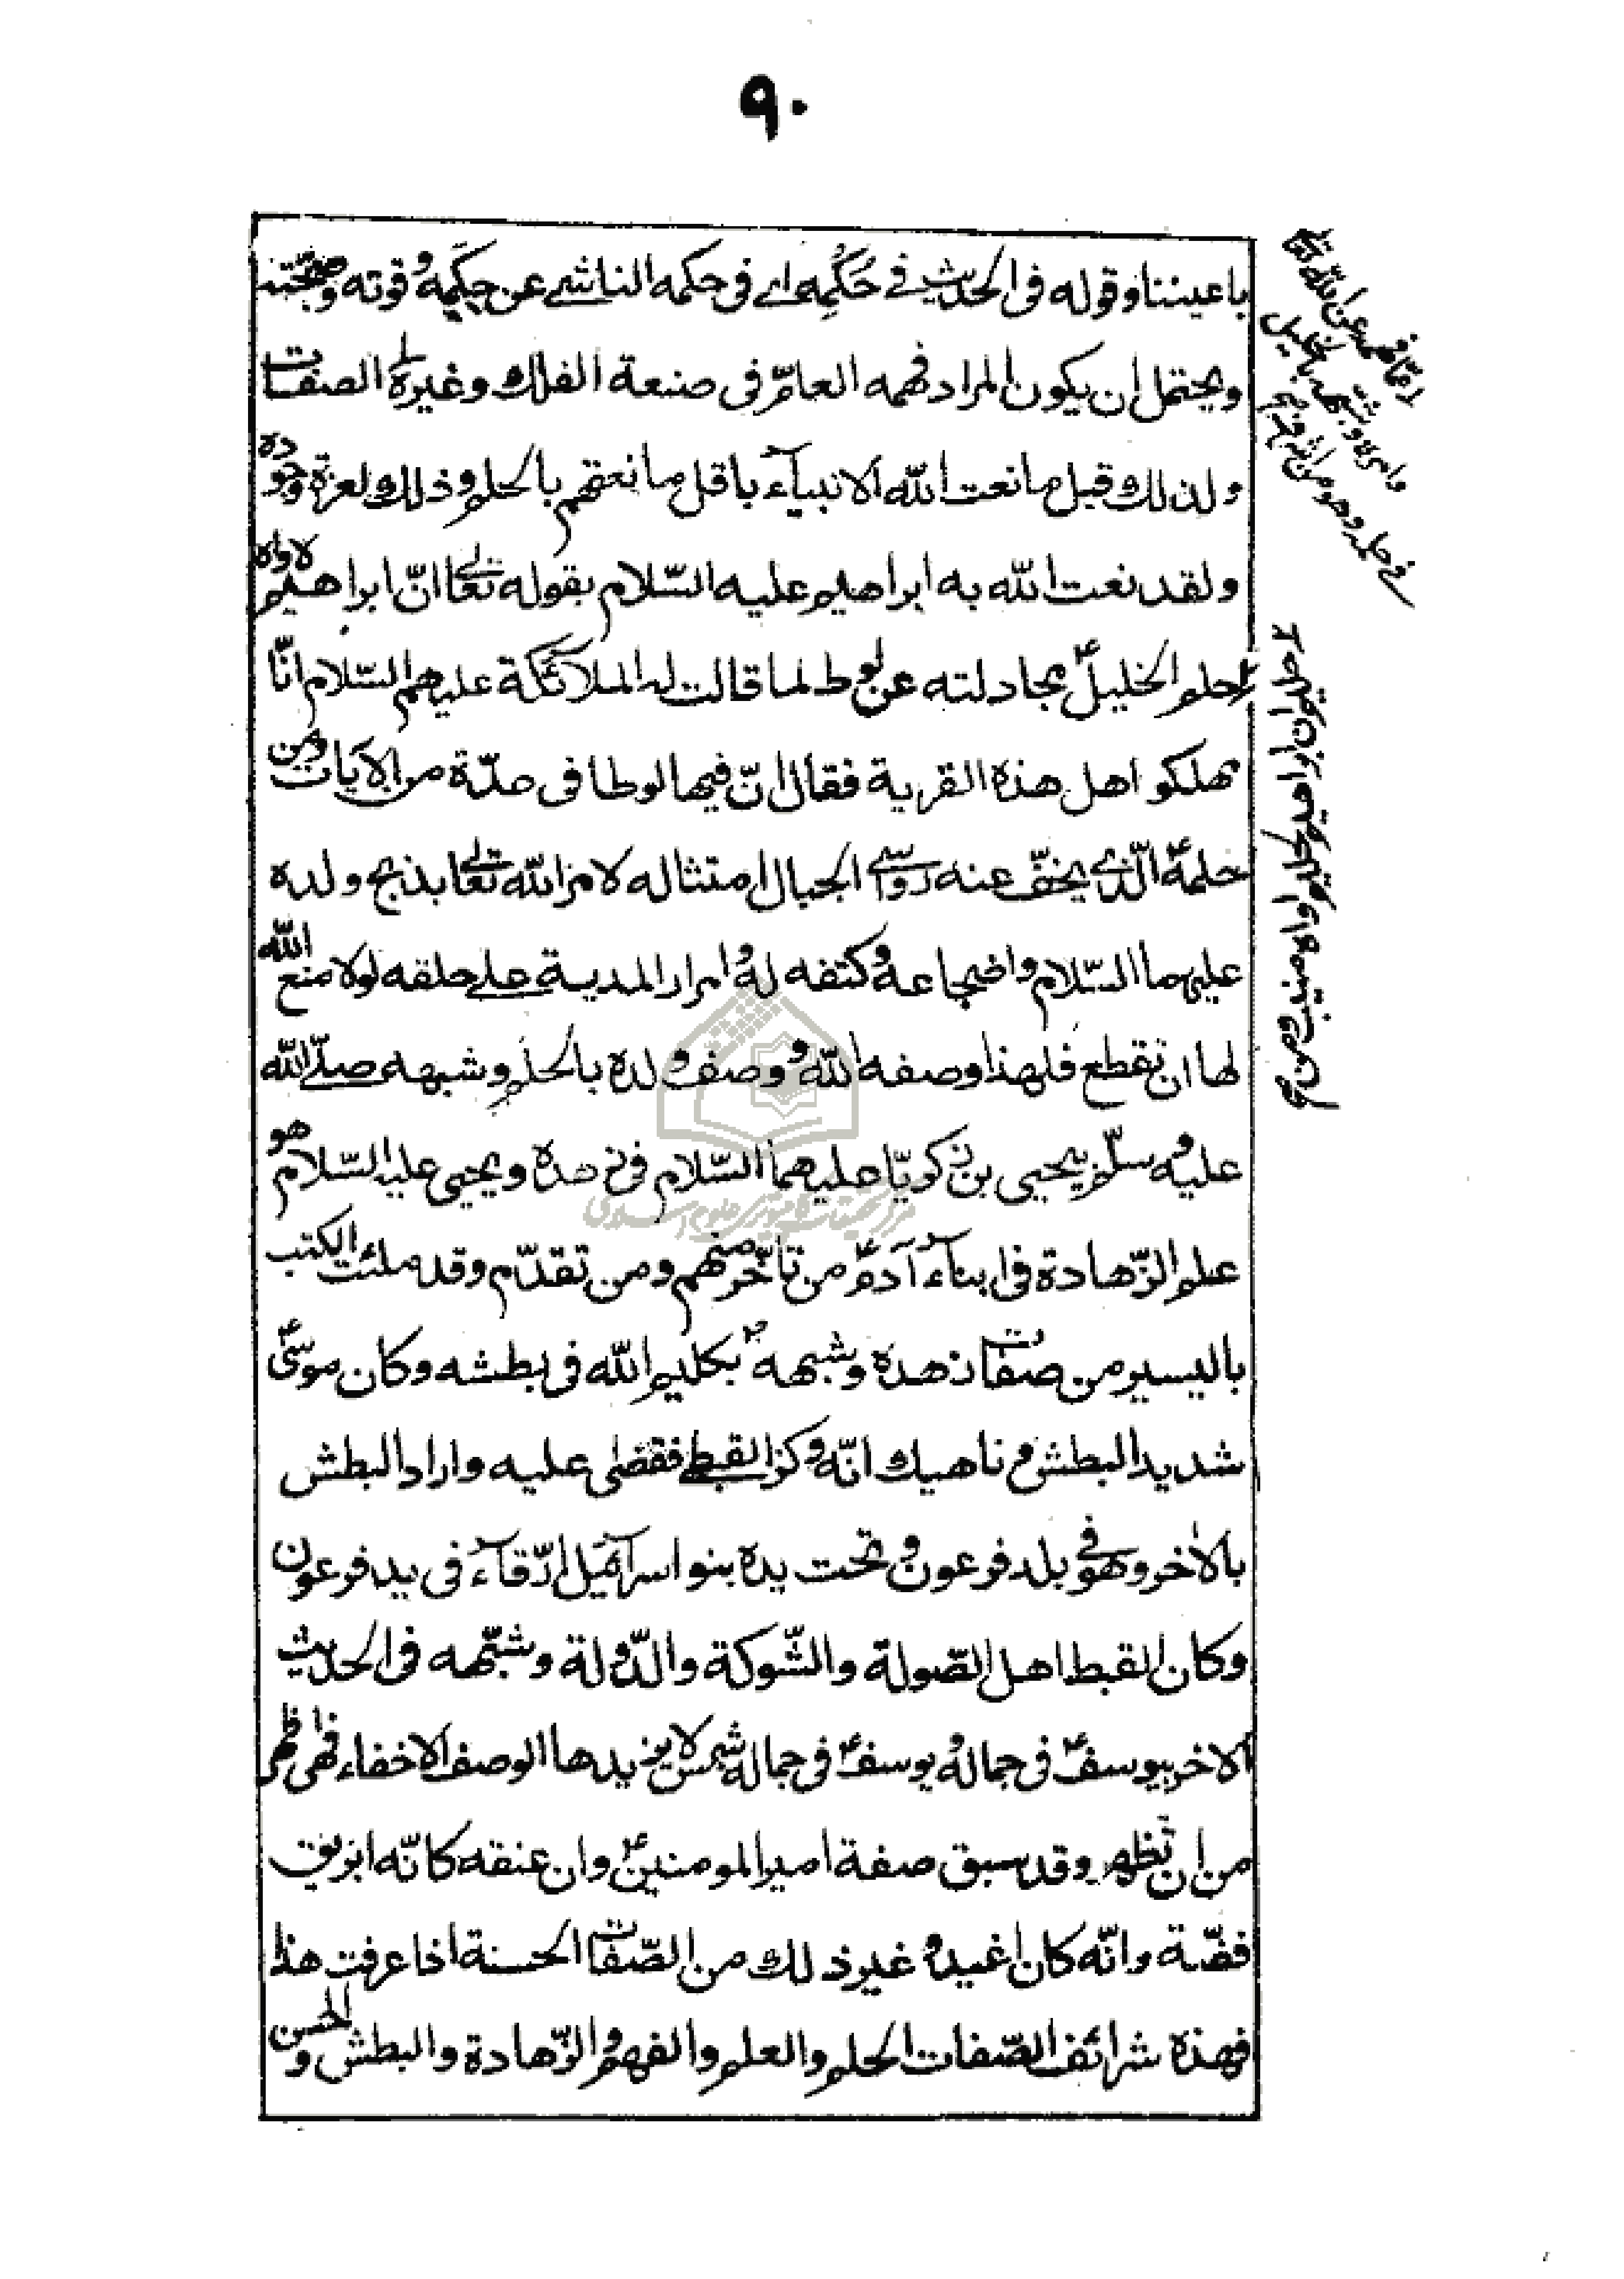 ٩٠
باعيننا وقوله فى الحديث فى حكمه اى فى حكمه الناشى عن حكمه وقوته وصحته
ويحتمل ان يكون المراد فهمه العام فى صنعة الفلك وغيره الصفات
ولذلك قيل ما نعت الله الانبيآء باقل ما نعتهم بالحلم وذلك لعزة وجوده
ولقد نعت الله به ابراهيم عليه السّلام بقوله تعالى انّ ابراهيم لاواه
حلم الخليلؑ مجادلته عن لوط لما قالت له الملائكة عليهم السّلام انّا
مهلكو اهل هذه القرية فقال انّ فيها لوطا فى عدّة من الايات ومن
حلمهؑ الّذى يخفّ عنه رواسى الجبال امتثاله لامر الله تعالى بذبح ولده
عليهما السّلام واضجاعه وكتفه له وامرار المدية على حلقه لولا منع الله
لها ان تقطع فلهذا وصفه الله ووصف ولده بالحلم وشبهه صلّى الله
عليه وسلّم بيحيى بن زكريّا عليهما السّلام فى زهده ويحيى عليه السّلام هو
علم الزّهادة فى ابنآء آدمؑ من تأخّر منهم ومن تقدّم وقد ملئت الكتب
باليسير من صفات زهده وشبهه بكليم الله فى بطشه وكان موسىؑ
شديد البطش وناهيك انّه وكز القبطى فقضى عليه واراد البطش
بالاخر وهو فى بلد فرعون وتحت يده بنو اسرآئيل ارقّآء فى يد فرعون
وكان القبط اهل الصّولة والشّوكة والدّولة وشبّهه فى الحديث
الاخر بيوسفؑ فى جماله ويوسفؑ فى جماله شمس لا يزيدها الوصف الا خفاء فهى اظهر
من ان تظهر وقد سبق صفة امير المومنينؑ وان عنقه كانّه ابريق
فضّة وانّه كان اغيد وغير ذلك من الصّفات الحسنة اذا عرفت هذا
فهذه شرائف الصّفات الحلم والعلم والفهم والزّهادة والبطش والحسن
امّا فهمه عن الله تعالى
وامره وشبهه بالخليل
فى حلمه وهو من اشرفهم
حليم ان ابراهيم لحليم اواه منيب ومن